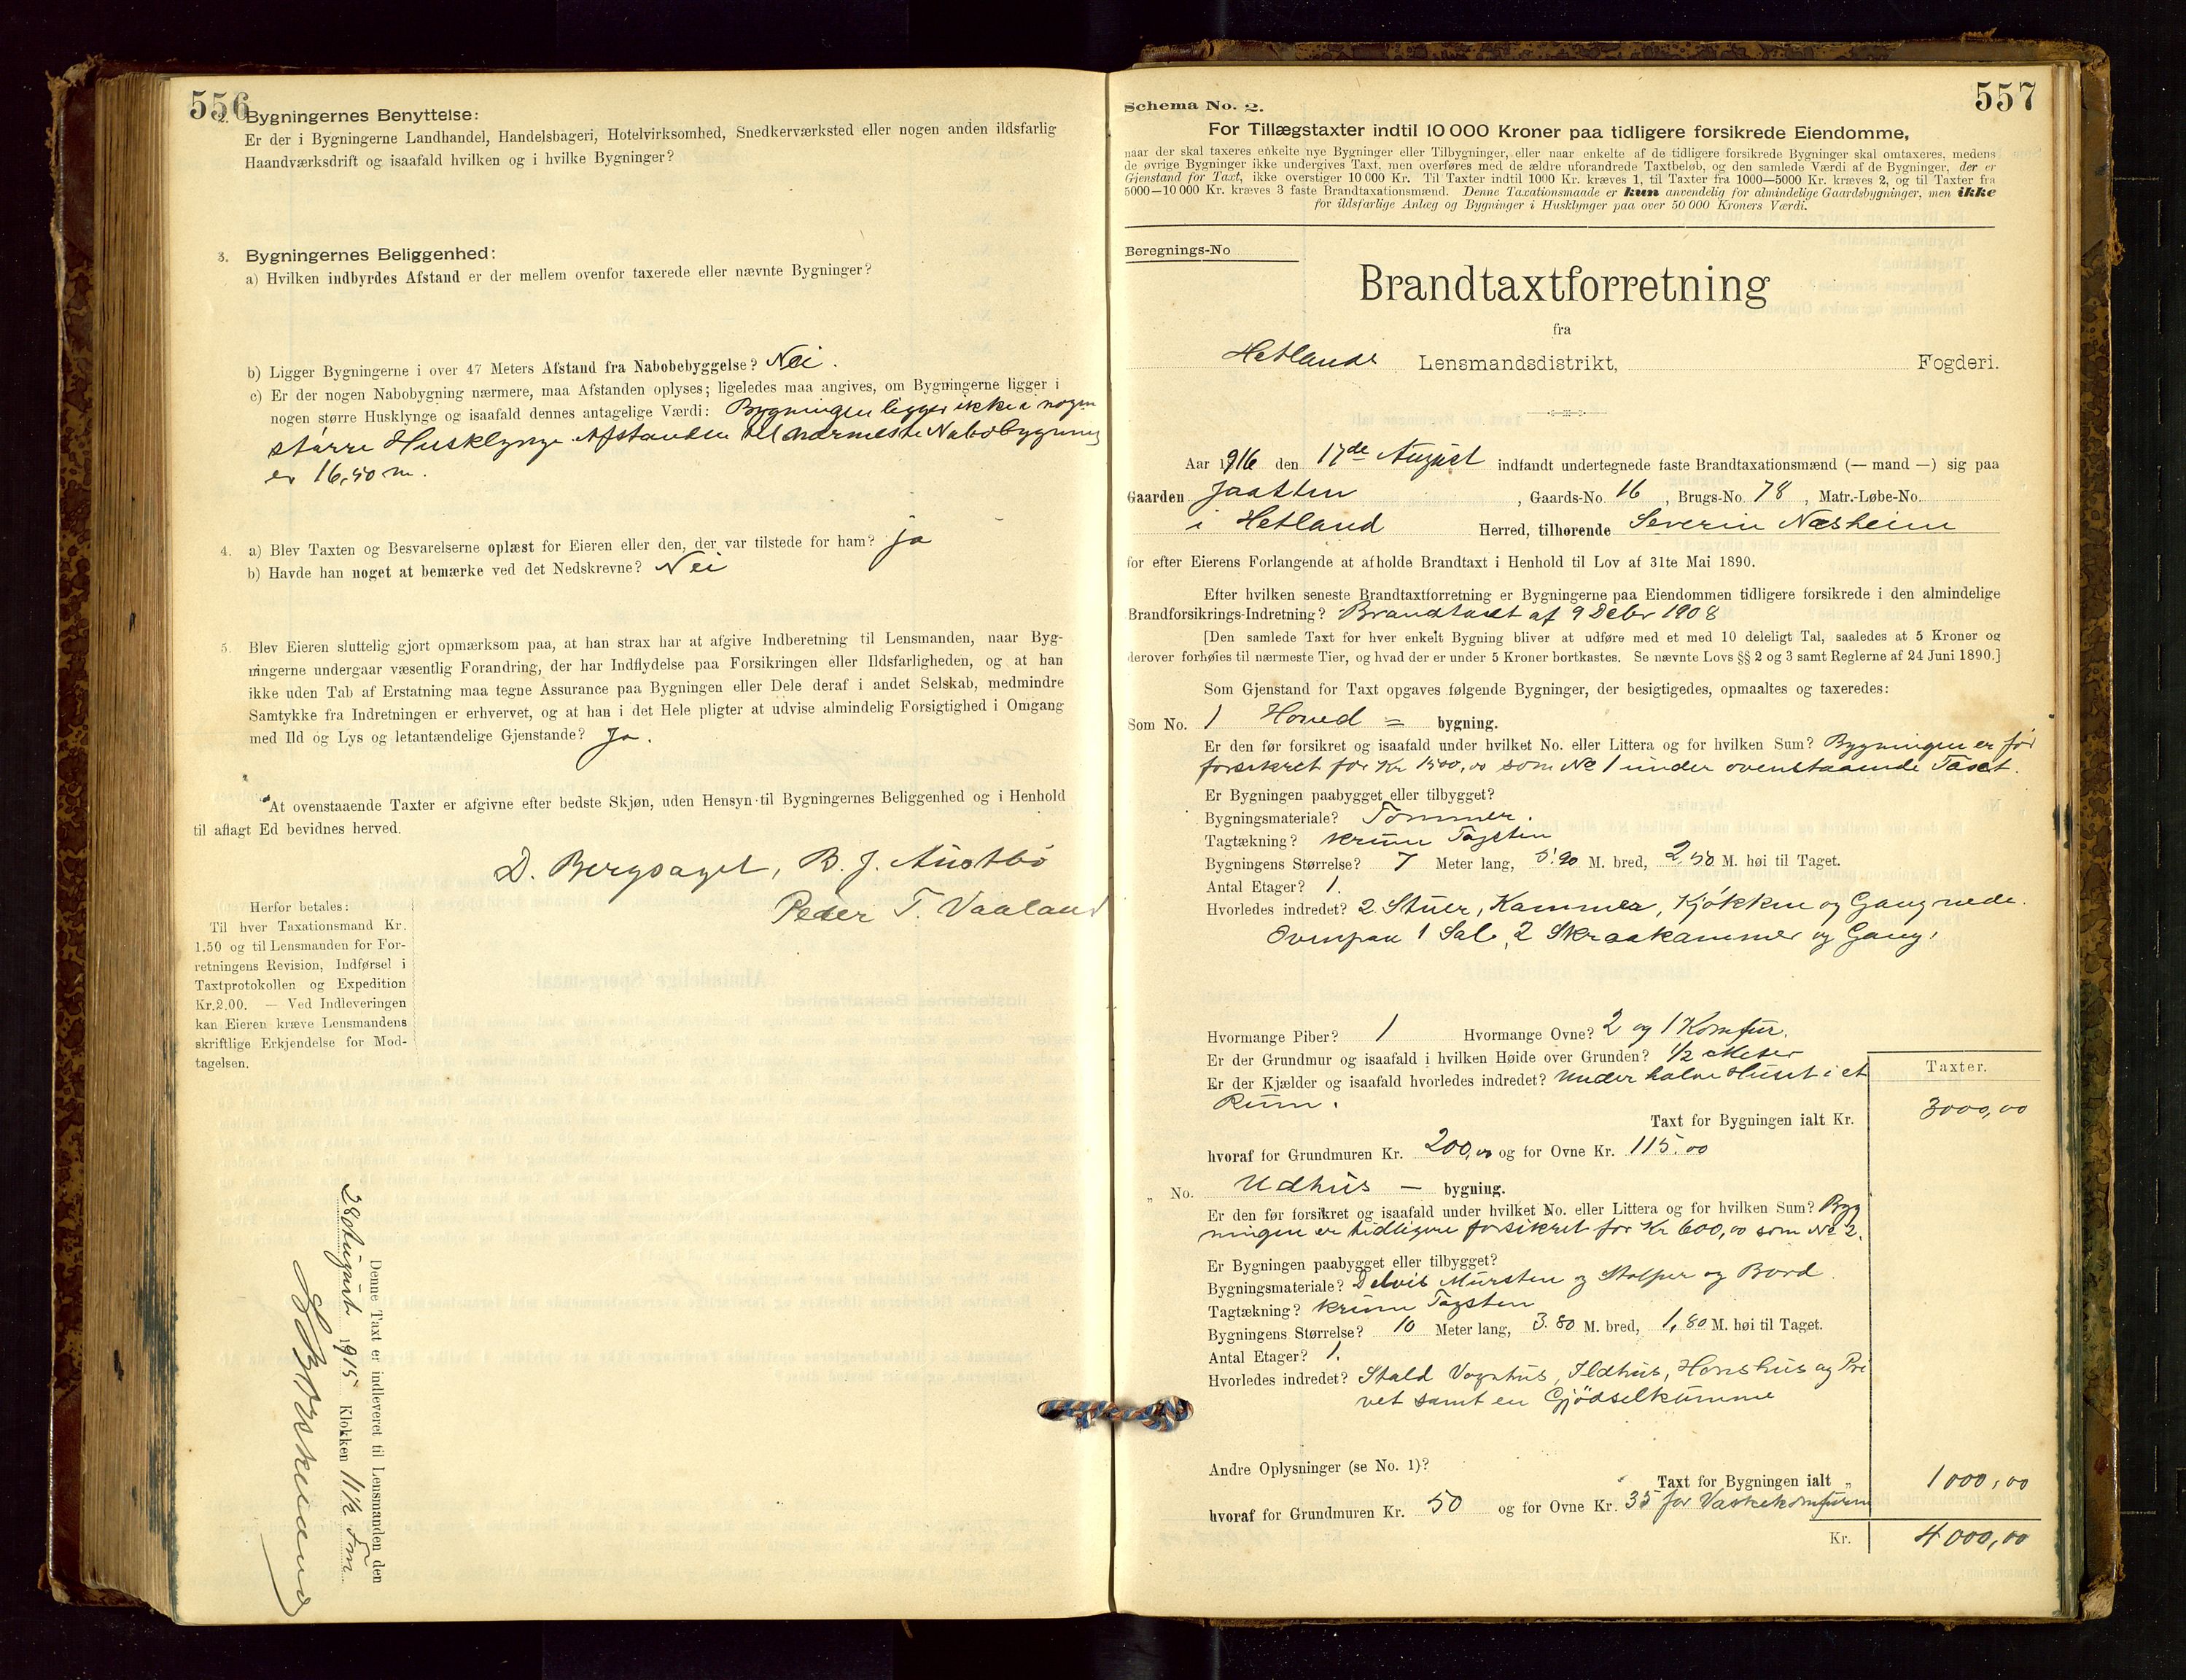 556
2. Bygningernes Benyttelse:
Er der i Bygningerne Landhandel, Handelsbageri, Hotelvirksomhed, Snedkerværksted eller nogen anden ildsfarlig
Haandværksdrift og isaafald hvilken og i hvilke Bygninger?
3. Bygningernes Beliggenhed:
a) Hvilken indbyrdes Afstand er der mellem ovenfor taxerede eller nævnte Bygninger?
b) Ligger Bygningerne i over 47 Meters Afstand fra Nabobebyggelse? Nei.
c) Er der nogen Nabobygning nærmere, maa Afstanden oplyses; ligeledes maa angives, om Bygningerne ligger i
nogen større Husklynge og isaafald dennes antagelige Værdi: Bygningen ligger ikke i nogen
større Husklynge. Afstanden til nærmeste Nabobygning
er 16,50 m.
4. a) Blev Taxten og Besvarelserne oplæst for Eieren eller den, der var tilstede for ham? ja
b) Havde han noget at bemærke ved det Nedskrevne? Nei
5. Blev Eieren sluttelig gjort opmærksom paa, at han strax har at afgive Indberetning til Lensmanden, naar Byg-
ningerne undergaar væsentlig Forandring, der har Indflydelse paa Forsikringen eller Ildsfarligheden, og at han
ikke uden Tab af Erstatning maa tegne Assurance paa Bygningen eller Dele deraf i andet Selskab, medmindre
Samtykke fra Indretningen er erhvervet, og at han i det Hele pligter at udvise almindelig Forsigtighed i Omgang
med Ild og Lys og letantændelige Gjenstande? Ja.
At ovenstaaende Taxter er afgivne efter bedste Skjøn, uden Hensyn til Bygningernes Beliggenhed og i Henhold
til aflagt Ed bevidnes herved.
D. Bergsagel, B. J. Austbö
Peder T. Vaaland
Herfor betales:
Til hver Taxationsmand Kr.
1.50 og til Lensmanden for For-
retningens Revision, Indførsel i
Taxtprotokollen og Expedition
Kr.2.00. — Ved Indleveringen
kan Eieren kræve Lensmandens
skriftlige Erkjendelse for Mod-
tagelsen.
Denne Taxt er indleveret til Lensmanden den
28 August 1915 Klokken 11½ Fm
557
Schema No. 2.
For Tillægstaxter indtil 10 000 Kroner paa tidligere forsikrede Eiendomme,
naar der skal taxeres enkelte nye Bygninger eller Tilbygninger, eller naar enkelte af de tidligere forsikrede Bygninger skal omtaxeres, medens
de øvrige Bygninger ikke undergives Taxt, men overføres med de ældre uforandrede Taxtbeløb, og den samlede Værdi af de Bygninger, der er
Gjenstand for Taxt, ikke overstiger 10 000 Kr. Til Taxter indtil 1000 Kr. kræves 1, til Taxter fra 1000—5000 Kr. kræves 2, og til Taxter fra
5000—10 000 Kr. kræves 3 faste Brandtaxationsmænd. Denne Taxationsmaade er kun anvendelig for almindelige Gaardsbygninger, men ikke
for ildsfarlige Anlæg og Bygninger i Husklynger paa over 50 000 Kroners Værdi.
Beregnings-No
Brandtaxtforretning
fra
Hetlands Lensmandsdistrikt, Fogderi.
Aar 1916 den 17de August indfandt undertegnede faste Brandtaxationsmænd (— mand —) sig paa
Gaarden Jaatten, Gaards-No. 16, Brugs-No. 78, Matr.-Løbe-No.
i Hetland Herred, tilhørende Severin Næsheim
for efter Eierens Forlangende at afholde Brandtaxt i Henhold til Lov af 31te Mai 1890.
Efter hvilken seneste Brandtaxtforretning er Bygningerne paa Eiendommen tidligere forsikrede i den almindelige
Brandforsikrings-Indretning? Brandtaxt af 9 Debr 1908
[Den samlede Taxt for hver enkelt Bygning bliver at udføre med et med 10 deleligt Tal, saaledes at 5 Kroner og
derover forhøies til nærmeste Tier, og hvad der er under 5 Kroner bortkastes. Se nævnte Lovs §§ 2 og 3 samt Reglerne af 24 Juni 1890.]
Som Gjenstand for Taxt opgaves følgende Bygninger, der besigtigedes, opmaaltes og taxeredes:
Som No. 1 Hoved = bygning.
Er den før forsikret og isaafald under hvilket No. eller Littera og for hvilken Sum? Bygningen er før
forsikret for Kr 1500,00 som No 1 under ovenstaaende Taxt.
Er Bygningen paabygget eller tilbygget?
Bygningsmateriale? Tömmer.
Tagtækning? krum Tagsten
Bygningens Størrelse? 7 Meter lang, 5.90 M. bred, 2,50 M. høi til Taget.
Antal Etager? 1.
Hvorledes indredet? 2 Stuer, Kammer, Kjökken og Gang nede.
Ovenpaa 1 Sal, 2 Skraakammer og Gang.
Hvormange Piber? 1 Hvormange Ovne? 2 og 1 Komfur.
Er der Grundmur og isaafald i hvilken Høide over Grunden? ½ Meter
Er der Kjælder og isaafald hvorledes indredet? Under halve Huset i et
Rum.
Taxter.
Taxt for Bygningen ialt Kr. 3000,00
hvoraf for Grundmuren Kr. 200,00 og for Ovne Kr. 115.00
„ No. Udhus — bygning.
Er den før forsikret og isaafald under hvilket No. eller Littera og for hvilken Sum? Byg
ningen er tidligere forsikret for Kr 600,00 som No 2.
Er Bygningen paabygget eller tilbygget?
Bygningsmateriale? Delvis Mursten og Stolper og Bord
Tagtækning? krum Tagsten
Bygningens Størrelse? 10 Meter lang, 3.80 M. bred, 1,80 M. høi til Taget.
Antal Etager? 1.
Hvorledes indredet? Stald Vognhus, Ildhus, Hönshus og Pri
vet samt en Gjödselkumme
Andre Oplysninger (se No. 1)?
Taxt for Bygningen ialt „ 1000,00
hvoraf for Grundmuren Kr. 50 og for Ovne Kr. 35 for Vaskekomfuren
Kr. 4000,00